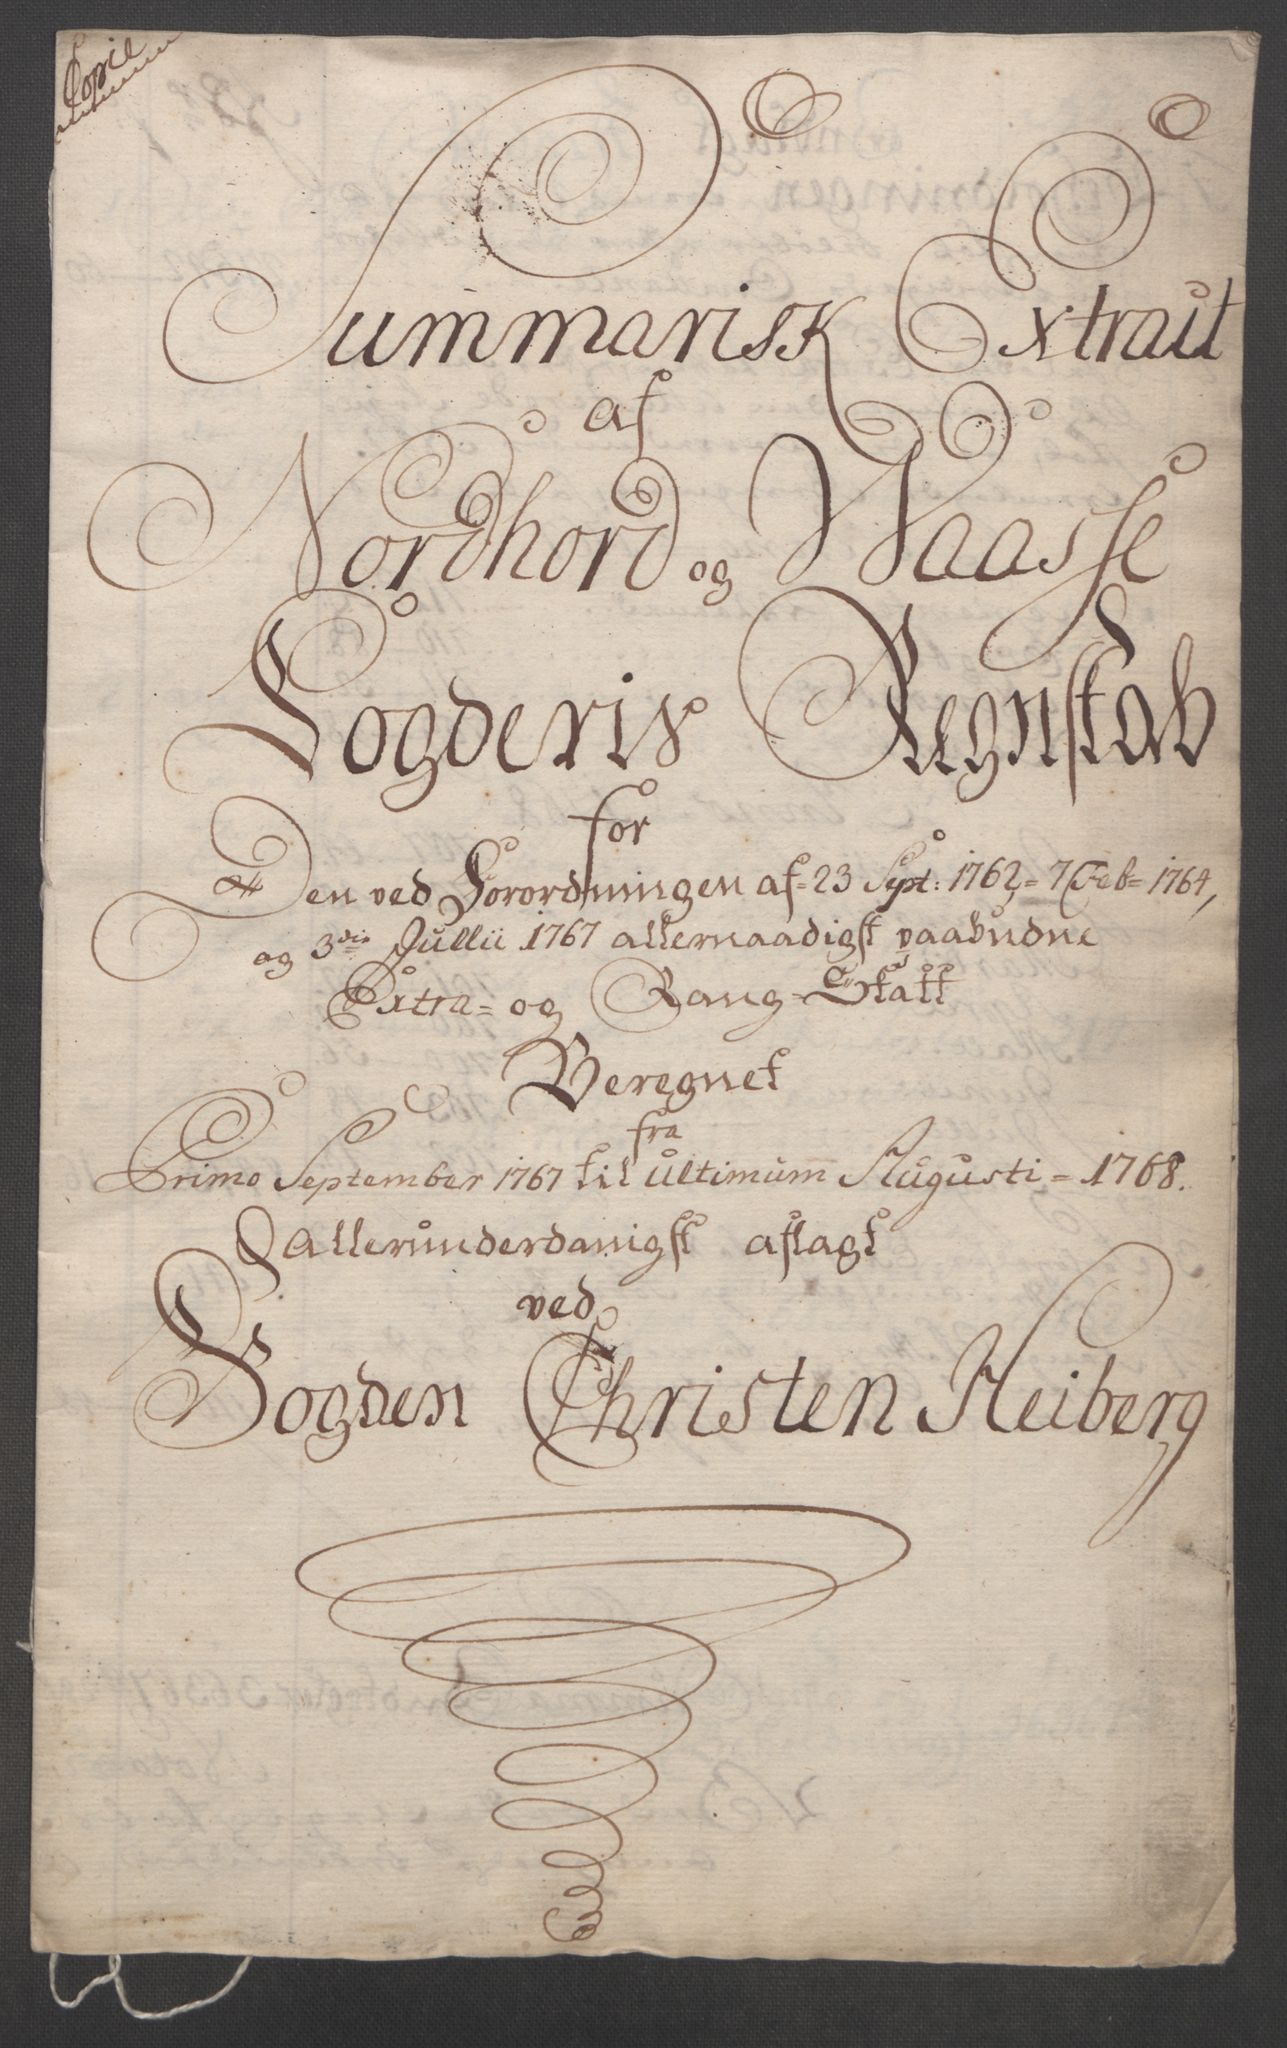 Copie
Summarisk Extract
af
Nordhord og Waasse
Fogderis Regnskab
for
Den ved Forordningen af 23 Sept: 1762, 7 Feb 1764,
og 3die Julii 1767 allernaadigst paabudne
Extra- og Rang-Skatt
Beregnet
fra
Primo September 1767 til Ultimum Augusti 1768.
allerunderdanigst aflagt
ved
Fogden Christen Heiberg